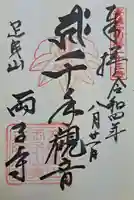 奉拝 令和四年
八月廿一日
千手觀音
足曳山
両子寺